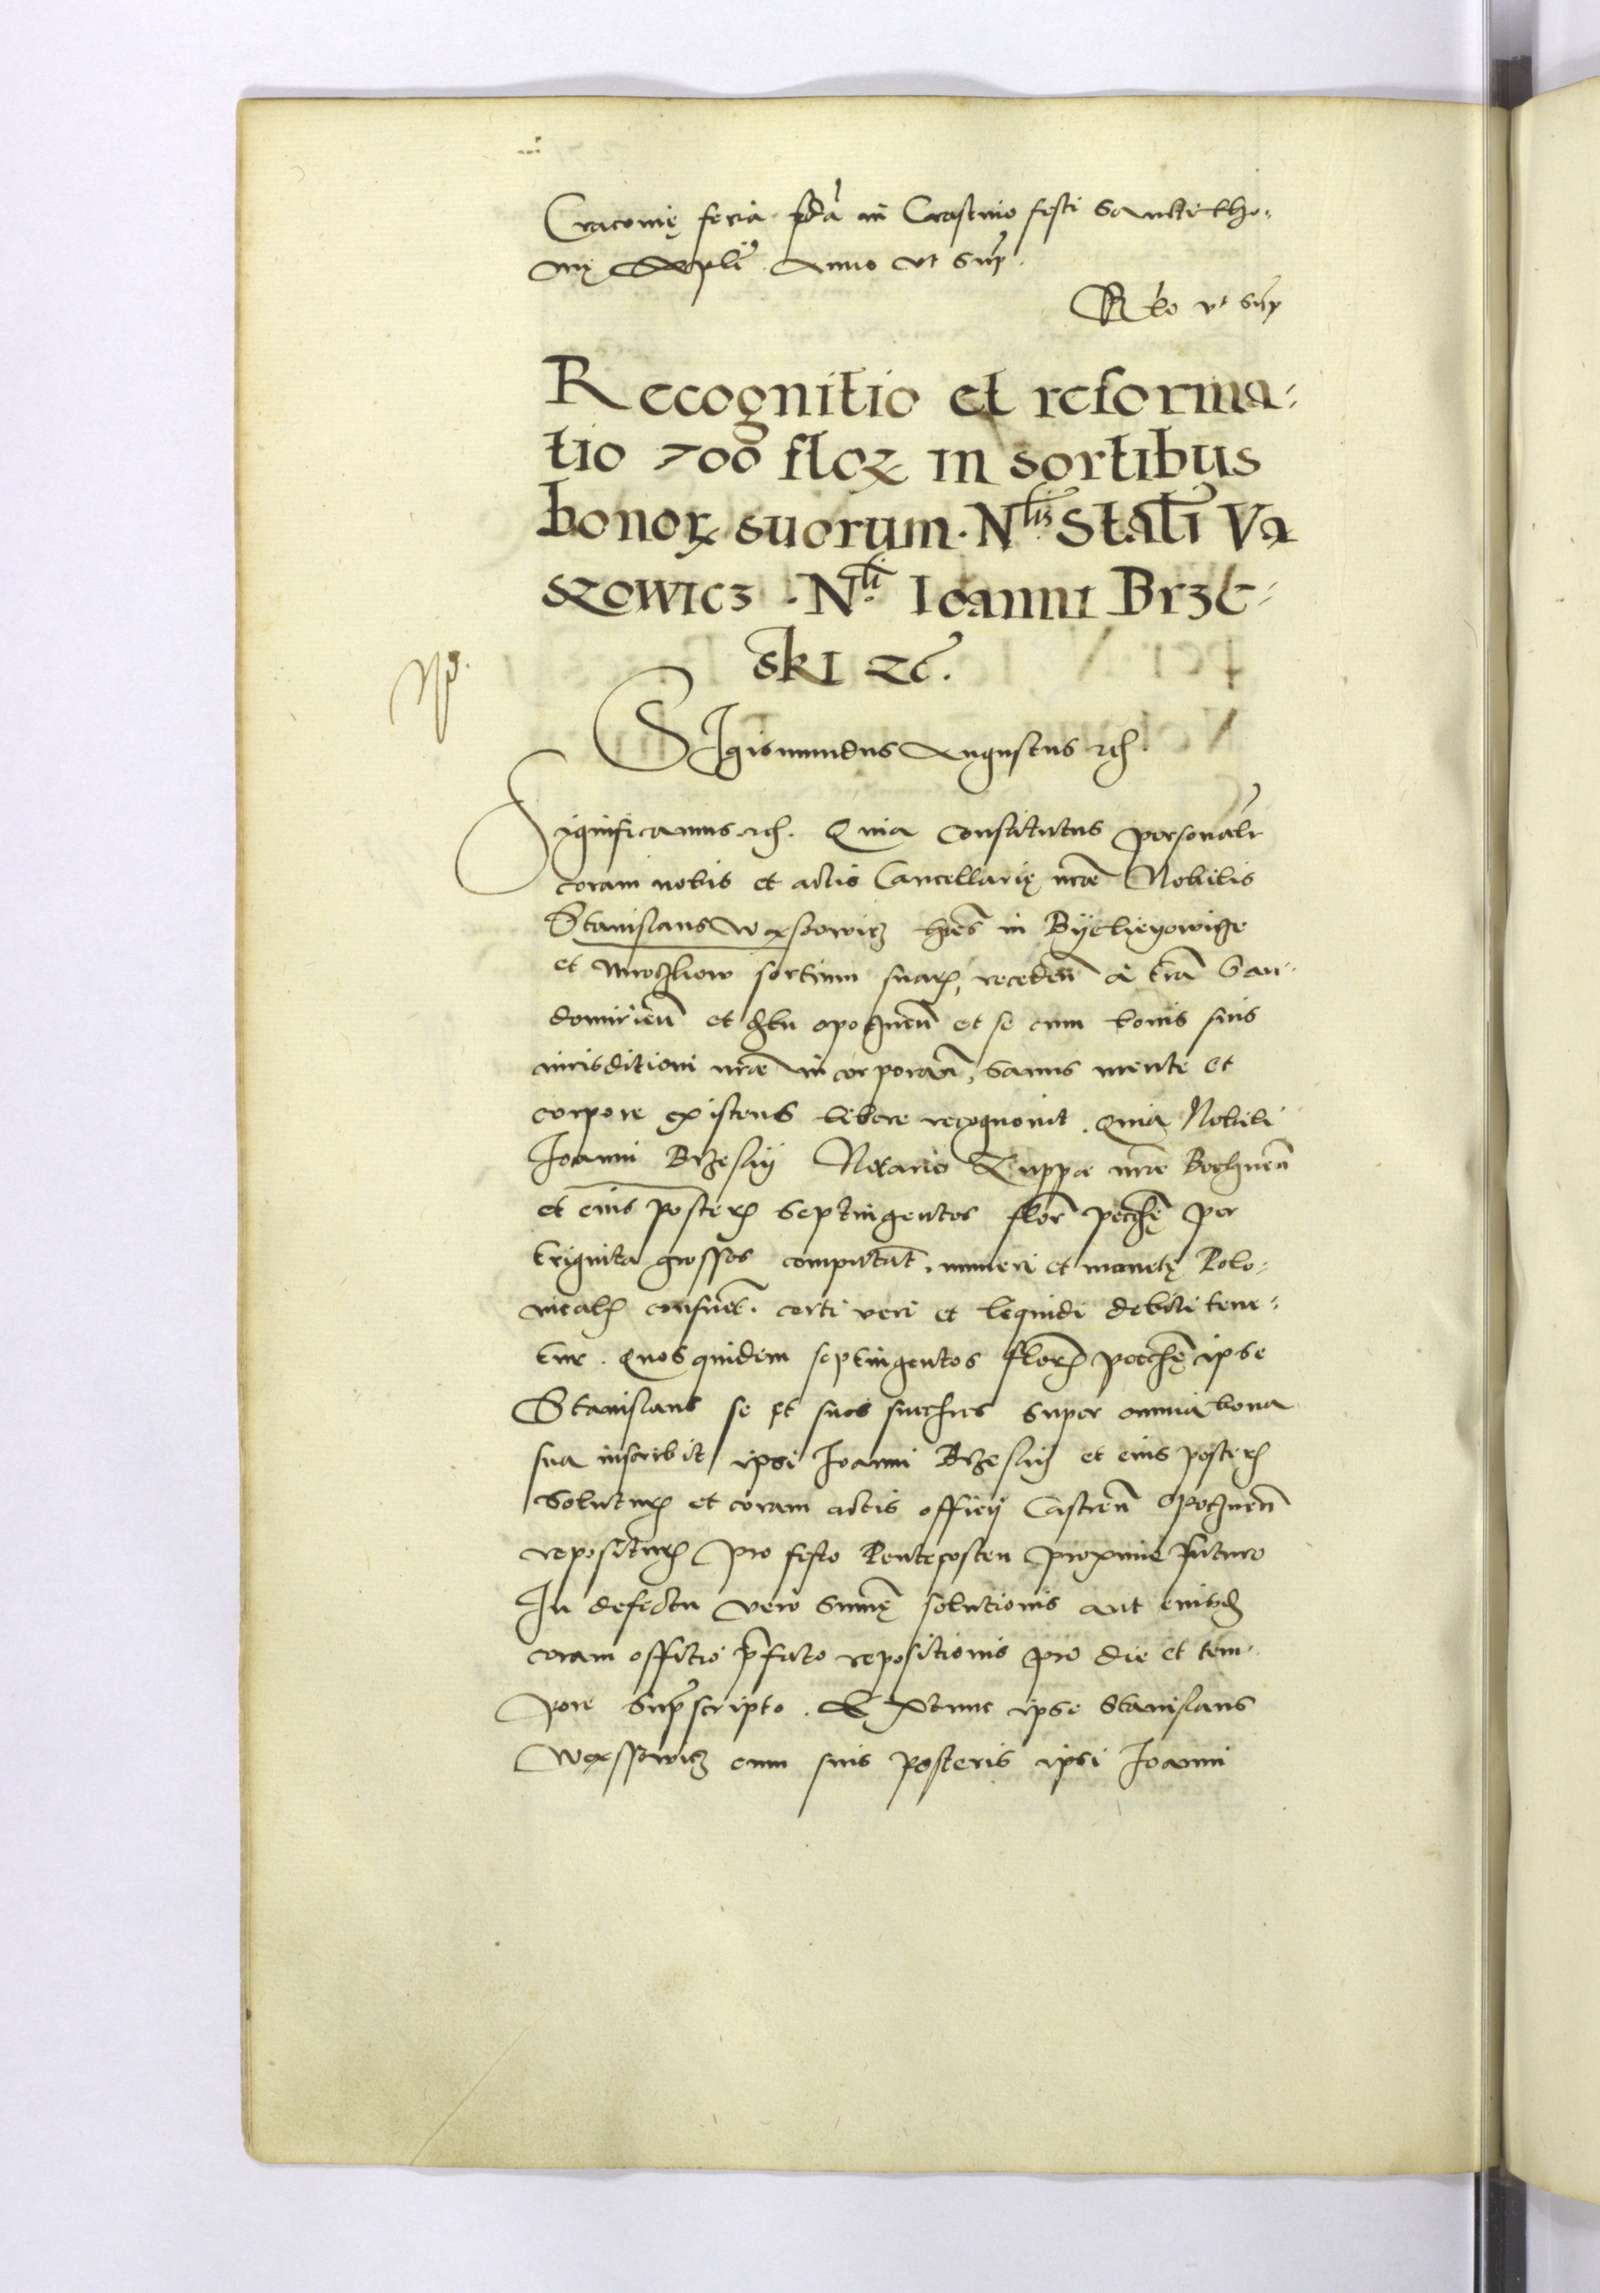 Cracovię feria sc̃da in Crastino festi Sancti Tho-
mę Ap̃li Anno ut sup̃.
R̃lo ut sup̃
Recognitio et reforma-
tio 700 floꝝ in sortibus
bonoꝝ suorum Nlis Stãi Va
szowicz Nli Ioanni Brze-
ski ꝛc̃.
SIgismundus Augustus ꝛc̃
Significamus ꝛc̃. Quia constitutus personalr
coram nobis et actis Cancellarię nr̃ae Nobilis
Stanislaus Waxssowicz hr̃es in
et sortium suaꝝ, receden̄ à tr̃a San-
domirien̄ et dr̃tu opocznen̄ et se cum bonis suis
iurisditioni nr̃ae incorporan̄, sanus mente et
corpore existens libere recognovit. Quia Nobili
Joanni Brzeskÿ Notario Zuppae nr̃ae Bochnen̄
et eius posteꝝ Septingentos flor̃ pecc̃hę per
triginta grossos computan̄t. numeri et monetę Polo-
nicalꝝ consuet̃. certi veri et liquidi debiti tene-
tur. Quos quidem septingentos floꝝ pecc̃hę ipse
Stanislaus se et suos succr̃es super omnia bona
sua inscribit ipsi Joanni Brzeskÿ et eius posteꝝ
Soluturꝝ et coram actis officij Castren̄ Opocznen̄
repositurꝝ pro festo Pentecosten proximè futuro
In defectu vero sum̃ę solutionis aut eiusdꝫ
coram offitio p̃fato repositionis pro die et tem-
pore sup̃scripto. Extunc ipse Stanislaus
Waxssowicz cum suis posteris ipsi Joanni